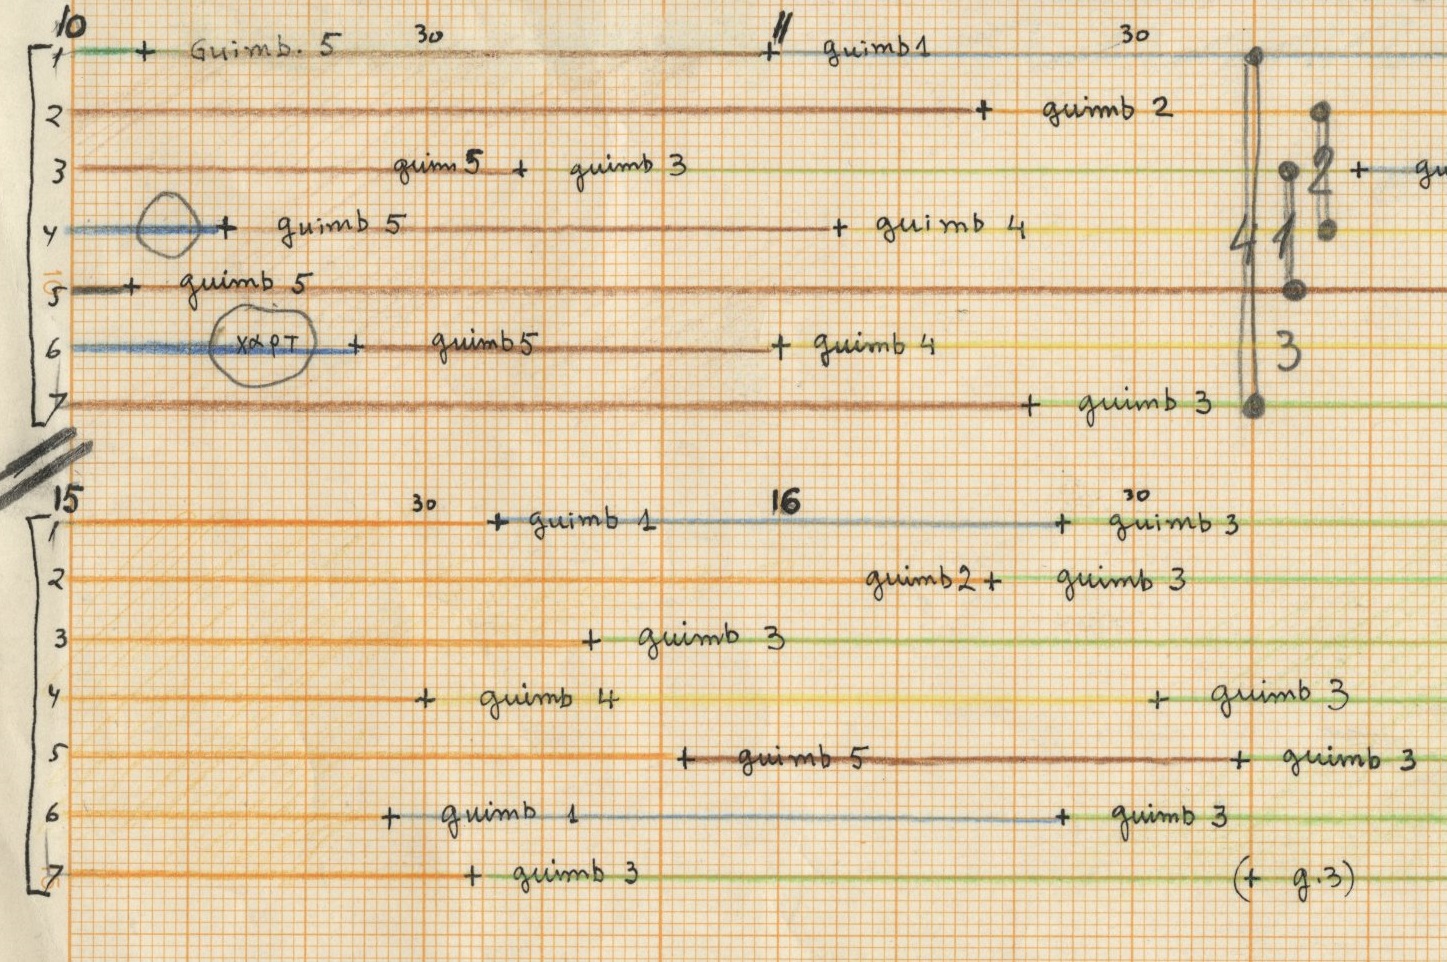 10 30 11 30
1 + Guimb. 5 + guimb 1
2 + guimb 2
3 guim 5 + guimb 3 + gu
4 + guimb 5 + guimb 4
4 1 2
5 + guimb 5
6 χαρτ + guimb 5 + guimb 4
3
7 + guimb 3
15 30 16 30
1 + guimb 1 + guimb 3
2 guimb 2 + guimb 3
3 + guimb 3
4 + guimb 4 + guimb 3
5 + guimb 5 + guimb 3
6 + guimb 1 + guimb 3
7 + guimb 3 (+ g.3)